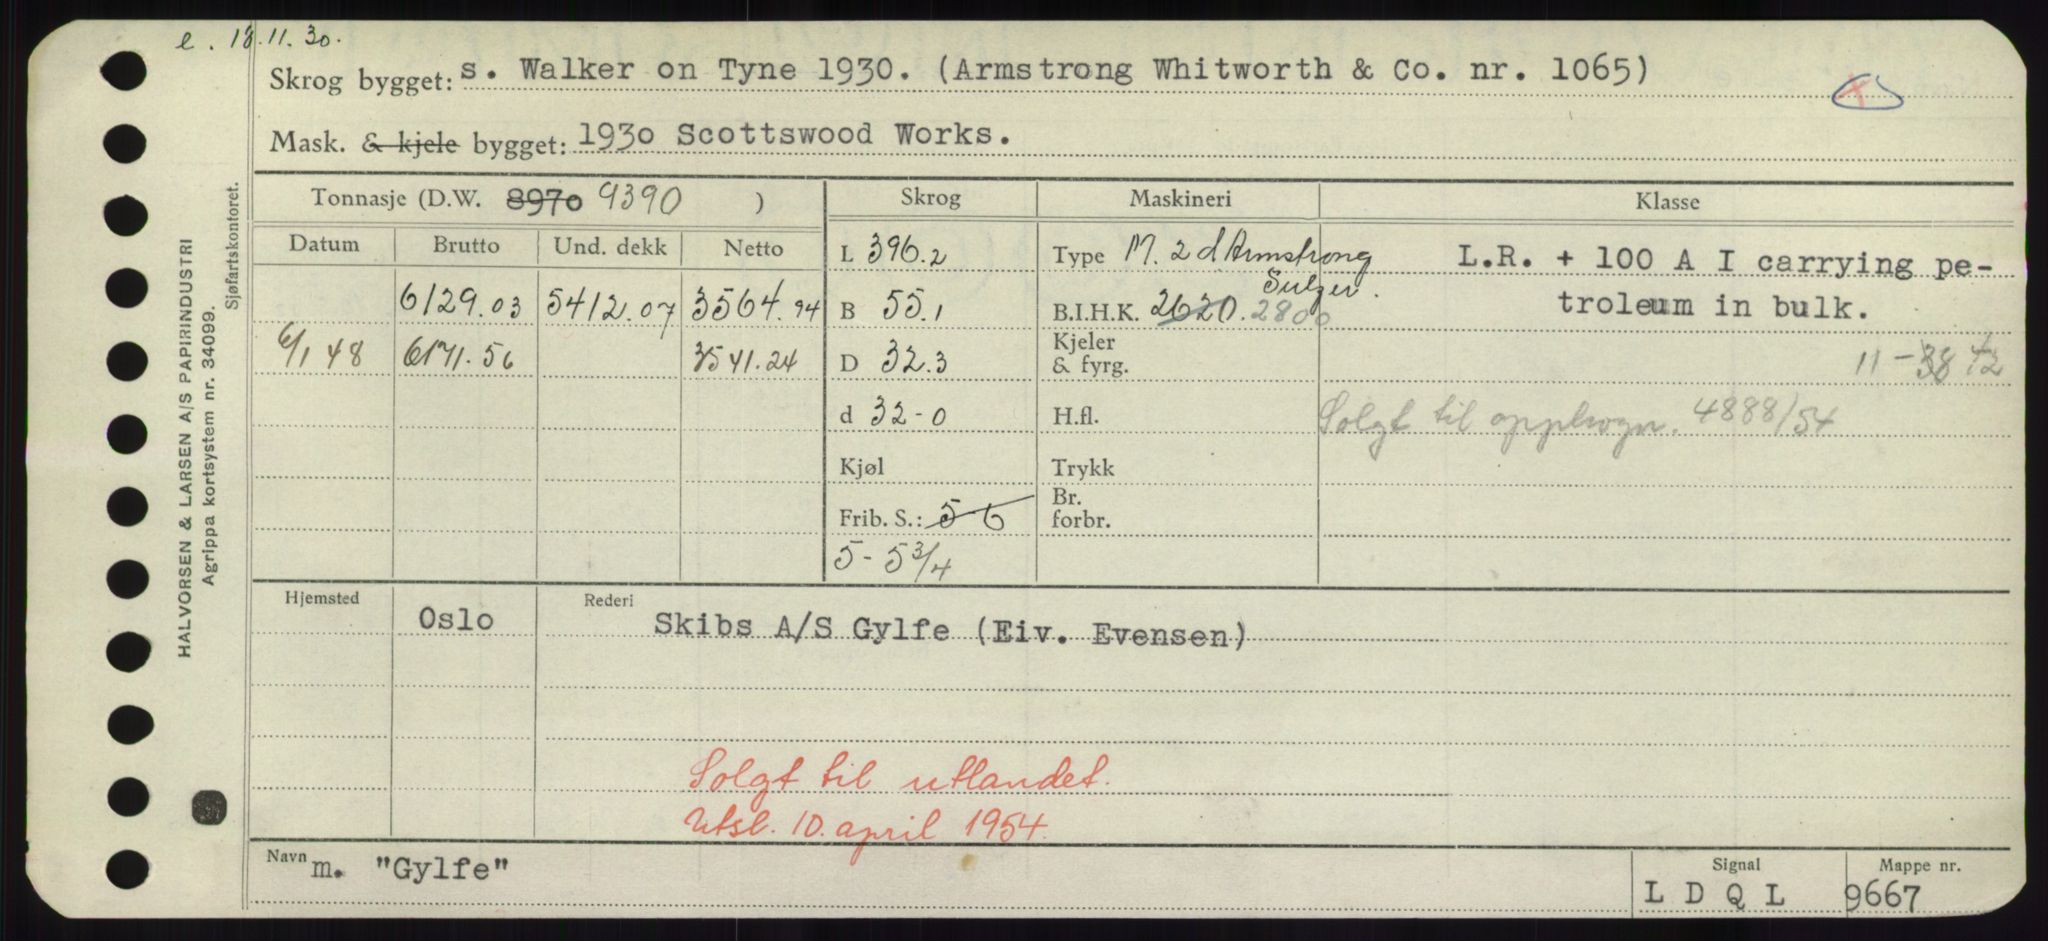 e. 18.11.30.
Skrog bygget: s. Walker on Tyne 1930. (Armstrong Whitworth & Co. nr. 1065)
Mask. & kjele bygget: 1930 Scottswood Works.
Tonnasje (D.W. 8970 9390 ) Skrog Maskineri Klasse
Datum Brutto Und. dekk Netto
L 396.2 Type M. 2 d Armstrong Sulzer.
L.R. + 100 A I carrying pe-
troleum in bulk.
6129.03 5412.07 3564.94 B 55.1 B.I.H.K. 2620. 2800
6/1 48 6171.56 3541.24 D 32.3 Kjeler & fyrg.
11-38 42
d 32-0 H.fl. Solgt til opphogn. 4888/54
Kjøl Trykk
Frib. S.: 5-6 Br. forbr.
5-5 3/4
Hjemsted Oslo Rederi Skibs A/S Gylfe (Eiv. Evensen)
Solgt til utlandet.
Utsl. 10. april 1954.
Navn m. "Gylfe" Signal L D Q L Mappe nr. 9667
HALVORSEN & LARSEN A/S PAPIRINDUSTRI
Agrippa kortsystem nr. 34099.
Sjøfartskontoret.